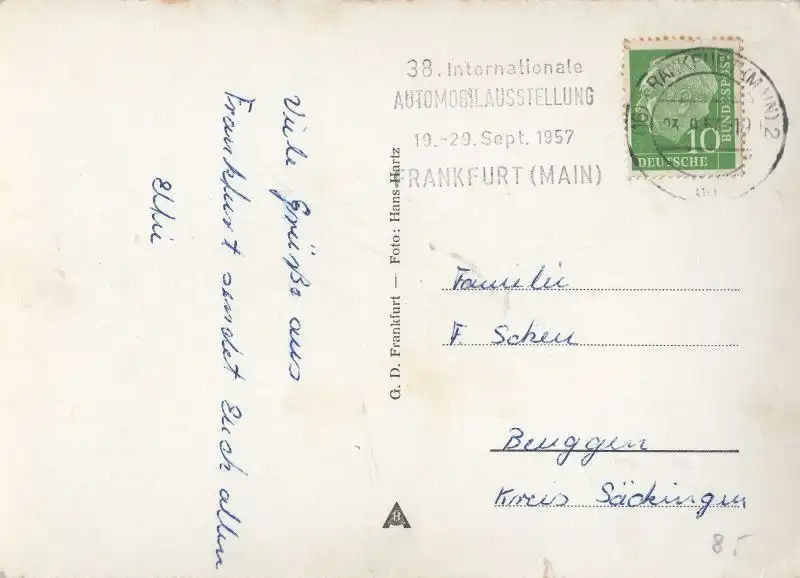 Viele Grüße aus
Frankfurt sendet Euch allen
38. Internationale
AUTOMOBILAUSSTELLUNG
19.-29. Sept. 1957
FRANKFURT (MAIN)
FRANKFURT (MAIN) 2
10
DEUTSCHE
BUNDESPOST
G. D. Frankfurt — Foto: Hans Hartz
Familie
F. Scheu
Beuggen
Kreis Säckingen
8
8,-